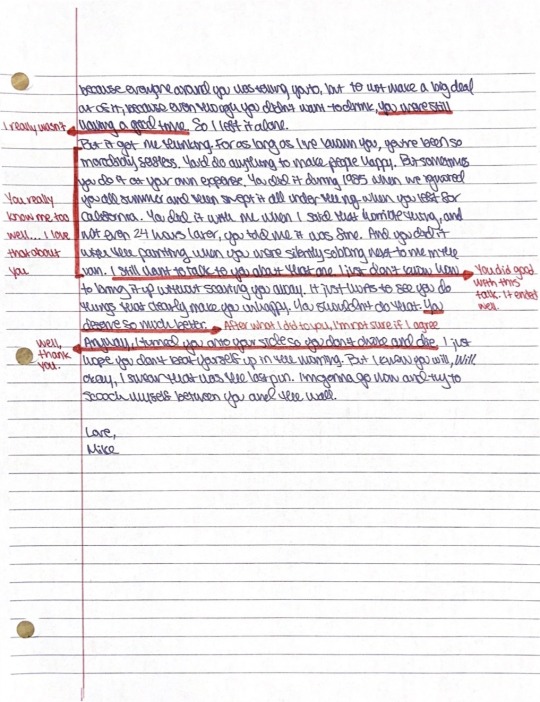 because everyone around you was telling you to, but to not make a big deal
out of it, because even though you didn't want to drink, you were still
I really wasn't
having a good time. So I left it alone.
But it got me thinking. For as long as I've known you, you're been so
morbidly selfless. You'd do anything to make people happy. But sometimes
you do it at your own expense. You did it during 1985 when we ignored
you all summer and then swept it all under the rug when you left for
California. You did it with me when I said that horrible thing, and
not even 24 hours later, you told me it was fine. And you did it
with the painting when you were silently sobbing next to me in the
van. I still want to talk to you about that one I just don't know how
to bring it up without scaring you away. It just hurts to see you do
things that clearly make you unhappy. You shouldn't do that. You
deserve so much better.
You really
know me too
well... I love
that about
you
You did good
with this
talk. It ended
well.
After what I did to you, I'm not sure if I agree
Anyway, I turned you onto your side so you don't choke and die. I just
hope you don't beat yourself up in the morning. But I know you will, Will.
okay, I swear that was the last pun. I'm gonna go now and try to
scooch myself between you and the wall.
well,
thank
you.
Love,
Mike